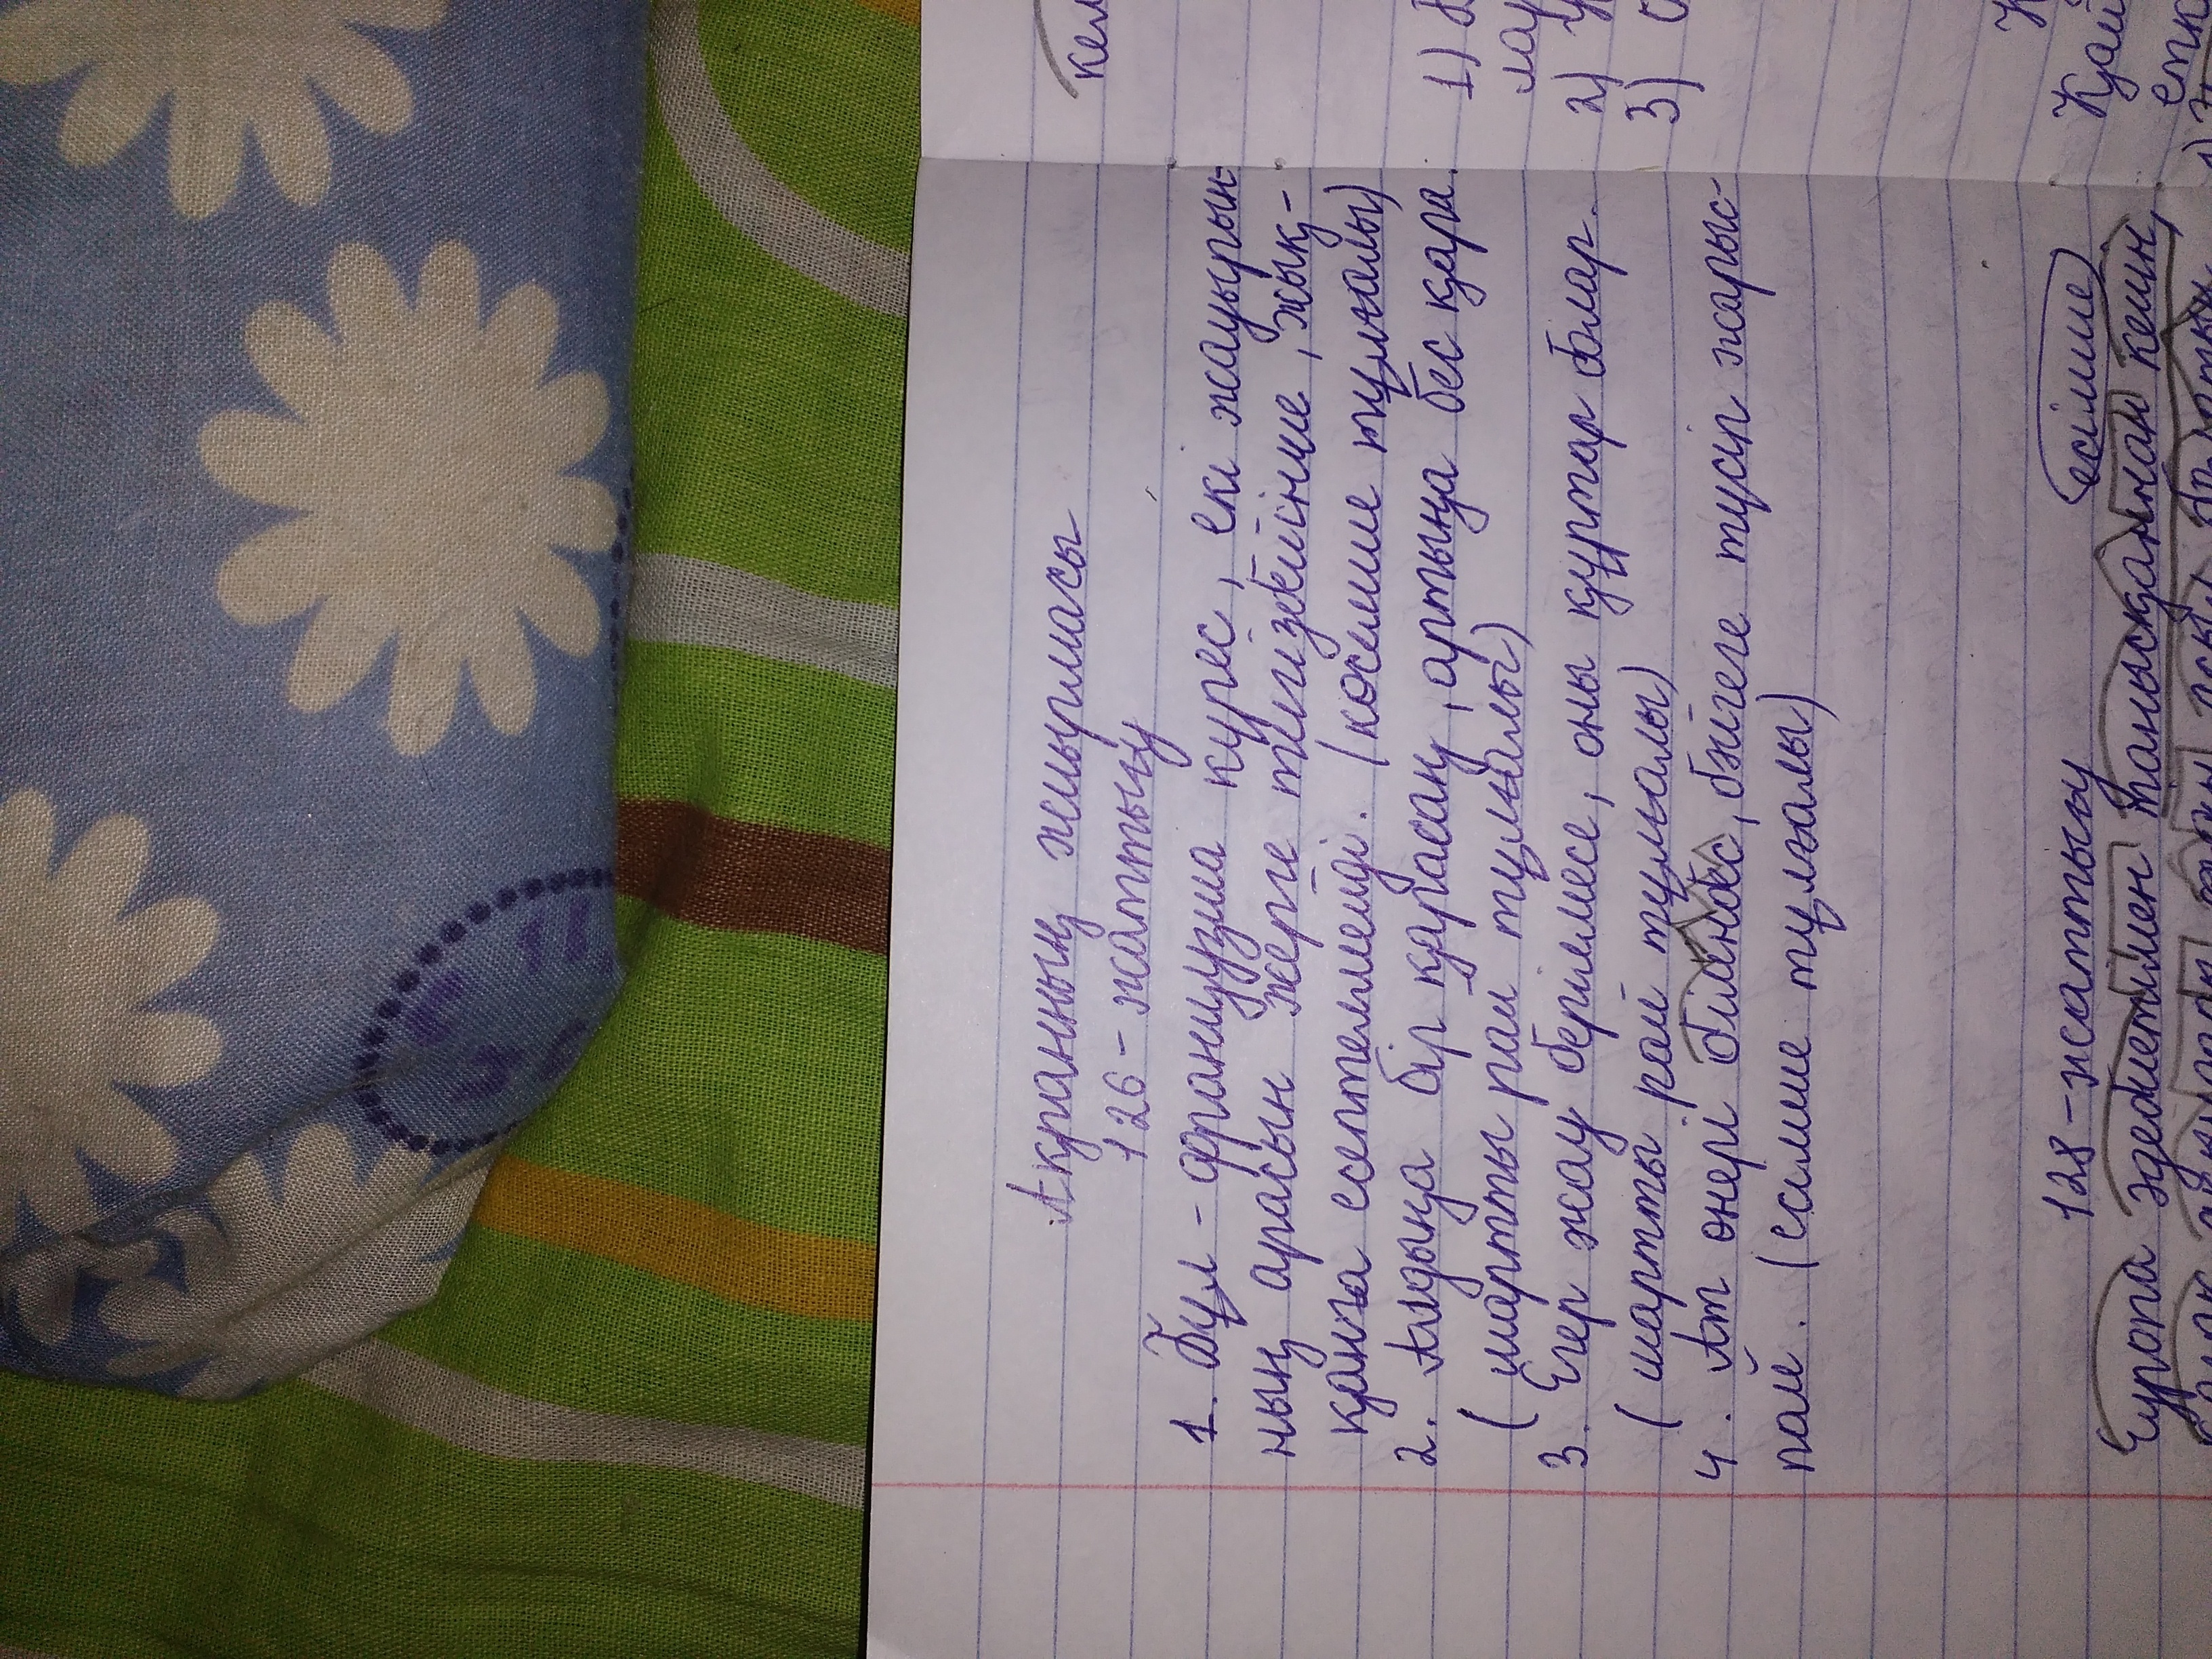 Ақпанның жиырмасы
126 - жаттығу
1. Бұл - французша күрес, екі жауырын-
ның арасын жерге тигізбейінше, жық-
қанға есептелмейді. (көсемше тұлғалы)
2. Алдыңа бір қарасаң, артыңа бес қара.
(шартты рай тұлғалы)
3. Егер жау берілмесе, оны құртар болар.
(шартты рай тұлғалы)
4. Ат өнері білінбес, бәйгеге түсіп жарыс-
пай. (есімше тұлғалы)
128 - жаттығу
есімше
Еуропа әдебиетімен танысқаннан кейін,
кел
1)
лау
2)
3)
Қай